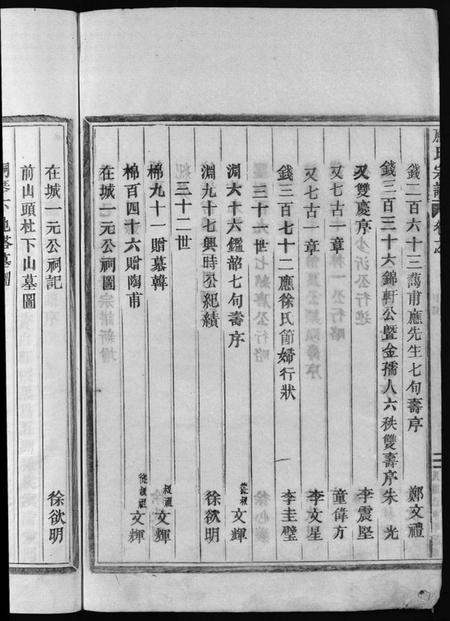 氏宗譜
錢二百六十三蔼甫應先生七旬壽序 鄭文禮
錢三百三十六錦軒公暨金孺人六秩雙壽序 朱光
又雙慶序 李震堅
又七古一章 童偉方
又七古一章 李文星
錢三百七十二應徐氏節婦行狀 李圭璧
三十一世
淵六十六鑑韶七旬壽序 從叔祖文輝
淵九十七興時公紀績 徐欲明
三十二世
棉九十一贈墓韓 叔祖文輝
棉百四十六贈陶甫 從叔祖文輝
在城一元公祠圖
在城一元公祠記 徐欲明
前山頭杜下山墓圖